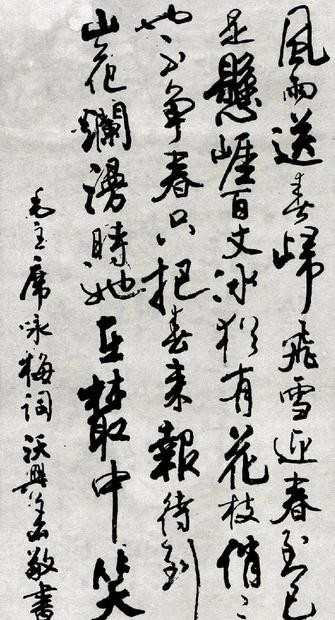 風雨送春歸飛雪迎春到已
是懸崖百丈冰猶有花枝俏〻
也不争春只把春来報待到
山花爛漫時她在叢中笑
毛主席咏梅词沃興華敬書